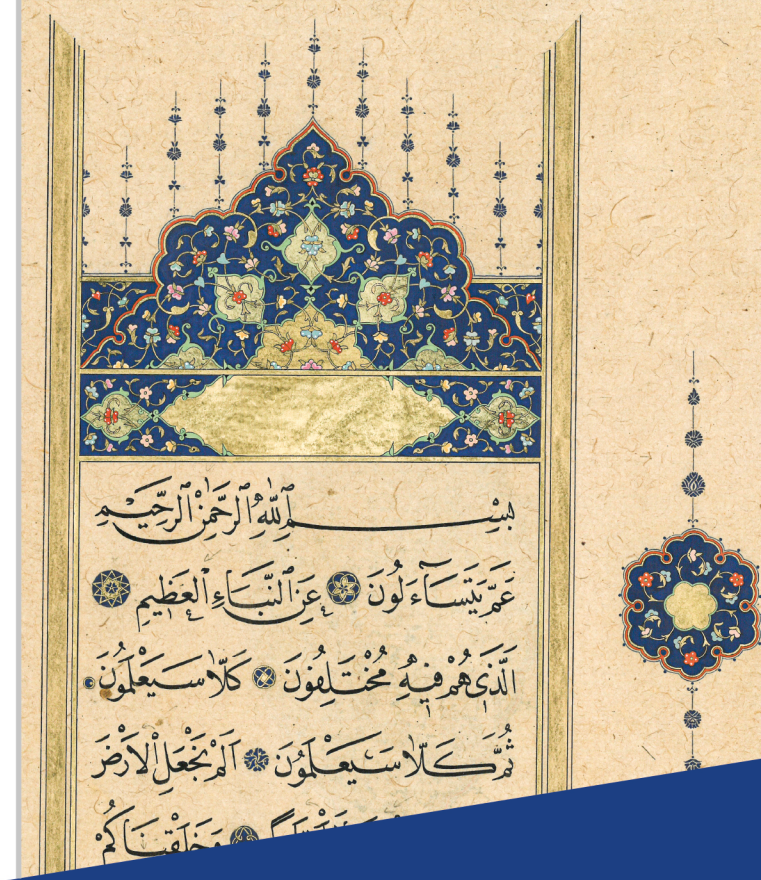 بِسْمِ ٱللّٰهِ ٱلرَّحْمٰنِ ٱلرَّحِيمِ
عَمَّ يَتَسَآءَلُونَ ۝ عَنِ ٱلنَّبَاءِ ٱلْعَظِيمِ ۝
اَلَّذِى هُمْ فِيهِ مُخْتَلِفُونَ ۝ كَلَّا سَيَعْلَمُونَ ۝
ثُمَّ كَلَّا سَيَعْلَمُونَ ۝ اَلَمْ نَجْعَلِ الْاَرْضَ
وَخَلَقْنَاكُمْ